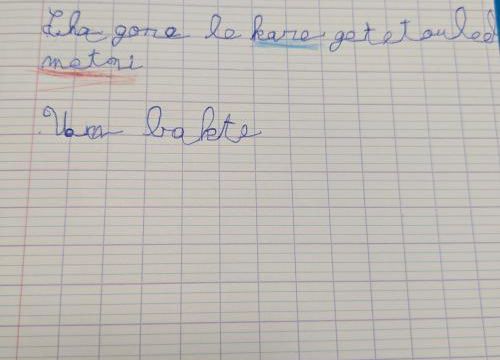 Lha gone le kare getetouled
metoni
Van bakte